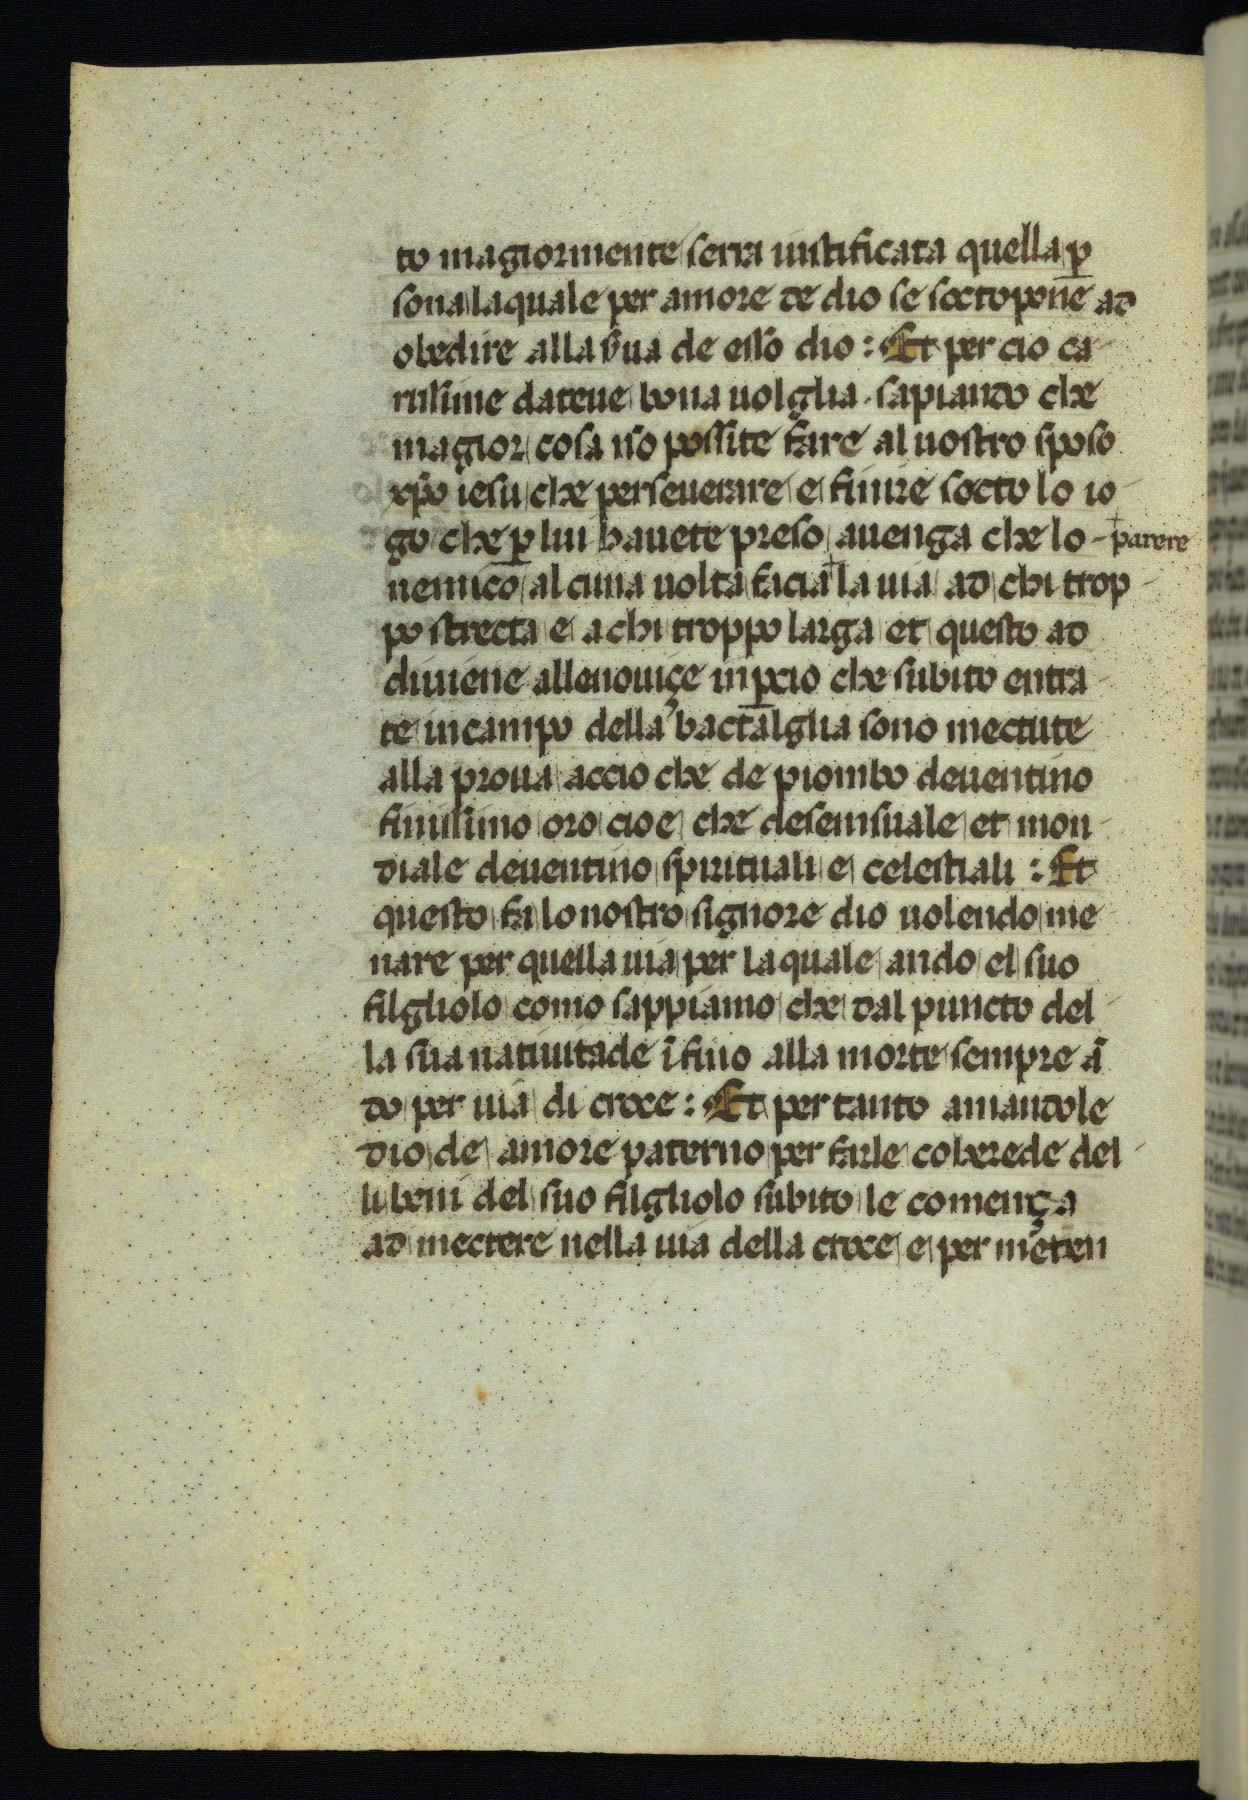 to magiormente serra iustificata quella p̱
sona laquale per amore de dio se soctopone ad
obedire alla s̄ua de esso dio : Et per cio ca
rissime dateue bona uolglia · sapiando che
magior cosa nō possite fare al uostro sposo
xp̄o iesu che perseuerare e finire socto lo io
go che p̱ lui hauete preso auenga che lo - ┼parere
nemico alcuna uolta facia ┼ la uia ad chi trop
po strecta e a chi troppo larga et questo ad
diuiene allenouiçe inp̱cio che subito entra
te in campo della bactalglia sono mectute
alla proua accio che de piombo deuentino
finissimo oro cioe che desensuale et mon
diale deuentino spirituali e celestiali : Et
questo fa lo nostro signore dio uolendo me
nare per quella uia per laquale ando el suo
filgliolo como sappiamo che dal puncto del
la sua natiuitade īfino alla morte sempre ā
do per uia di croce : Et per tanto amandole
dio de amore paterno per farle coherede del
li beni del suo filgliolo subito le comença
ad mectere nella uia della croce e per meten